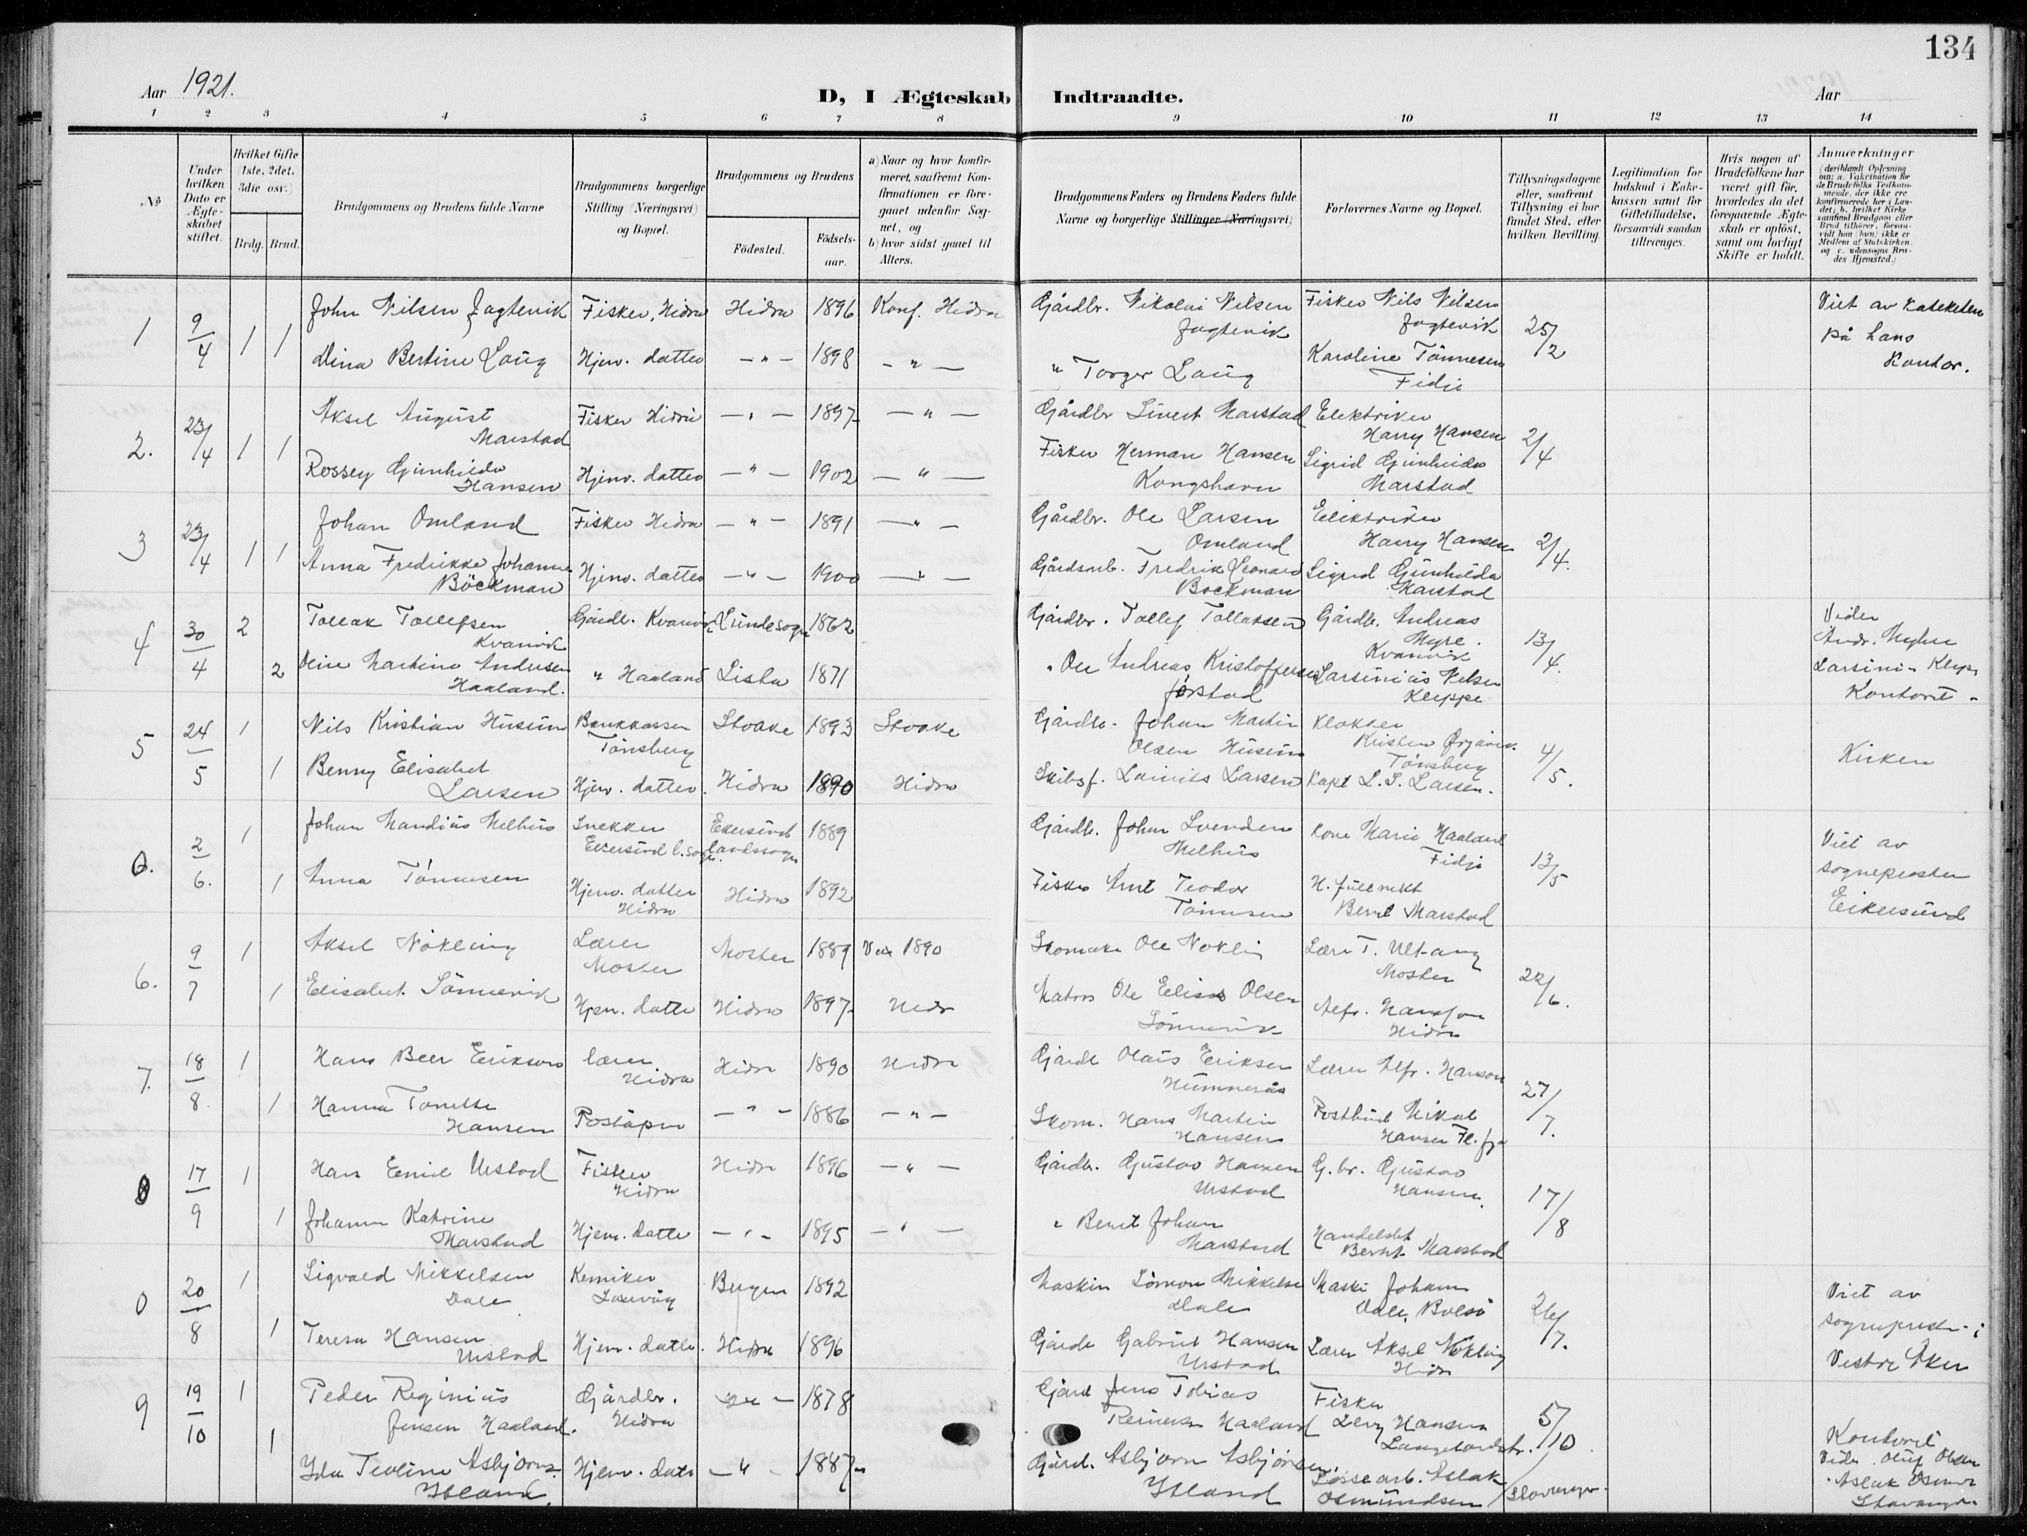 134
Aar 1921.
D, I Ægteskab Indtraadte.
Aar
1 2 3 4 5 6 7 8 9 10 11 12 13 14
No
Under hvilken Dato er Ægteskabet stiftet.
Hvilket Gifte (1ste, 2det, 3die osv.)
Brdg. Brud.
Brudgommens og Brudens fulde Navne
Brudgommens borgerlige Stilling (Næringsvei) og Bopæl.
Brudgommens og Brudens
Fødested.
Fødselsaar.
a) Naar og hvor konfirmeret, saafremt Konfirmationen er foregaaet udenfor Sognet, og
b) hvor sidst gaaet til Alters.
Brudgommens Faders og Brudens Faders fulde Navne og borgerlige Stillinger (Næringsvei)
Forlovernes Navne og Bopæl.
Tillysningsdagene eller, saafremt Tillysning ei har fundet Sted, efter hvilken Bevilling.
Legitimation for Indskud i Enkekassen samt for Giftetilladelse, forsaavidt saadan tiltrænges.
Hvis nogen af Brudefolkene har været gift før, hvorledes da det foregaaende Ægteskab er opløst, samt om lovligt Skifte er holdt.
Anmærkninger
1 9/4 1 1 John Nilsen Jagtevik Fisker, Hidra Hidra 1896 Konf. Hidra Gårdbr. Nikolai Nilsen Jagtevik Fisker Nils Nilsen Jagtevik 25/2 Viet av
på hans Kontor.
Mina Bertine Laug Hjev. datter — " — 1898 — " — " Torger Laug Karoline Tønnesen Fidje
2. 23/4 1 1 Aksel August Marstad Fisker Hidra — " — 1897 — " — Gårdbr Sivert Marstad Elektriker Harry Hansen 2/4
Rossey Gunhilda Hansen Hjev. datter — " — 1902 — " — Fisker Herman Hansen Kongshavn Sigrid Gunhilda Marstad
3 23/4 1 1 Johan Omland Fisker Hidra — " — 1891 — " — Gårdbr. Ole Larsen Omland Elektriker Harry Hansen 2/4.
Anna Fredrikke Johanne Böckman Hjev. datter — " — 1900 — " — Gårdsarb. Fredrik Leonard Bockman Sigrid Gunhilda Marstad
4 30/4 2 Tollak Tollefsen Kvanvik Gårdb. Kvanvik Lunde sogn 1862 Gårdbr. Tollef Tollaksen Gårdb. Andreas Myre. Kvanvik 13/4. Viden
Andr. Myhre
Kontoret -
2 Oline Martine Andersen Haaland. " Haaland Lista 1871 " Ole Andreas Kristoffersen Jørstad Larsinius Nilsen Kleppe
5 24/5 1 Nils Kristian Huseim Bankkasser Tønsberg Stokke 1893 Stokke Gårdb. Johan Martin Olsen Huseim Klokker Kristen Tønsberg 4/5. Kirken
1 Benny Elisabet Larsen Hjev. datter. Hidra 1890 Hidra Skibsf. Laurits Larsen Kapt L. S. Larsen.
6. 2/6. 1 Johan Mandius Melhus Snekker Ekersund l. sogn. Ekersund landssogn 1889 Gårdb. Johan Svendsen Melhus Kone Marie Haaland Fidje 13/5 Viet av
sogneprosten
Eikersund
1 Anna Tønnesen Hjev. datter Hidra Hidra 1892 Fisker Arnt Teodor Tønnesen Bernt Marstad
6. 9/7 1 Aksel Nökling Lærer Moster Moster 1889 1890 Skomaker Ole Nøkling Lærer T. Moster 22/6.
1 Elisabet Sönnevik Hjev. datte Hidra 1897 Hidr Matros Ole Elias Olsen Sönnevik Alfr. Hansson Hidra
7. 18/8 1 Hans Beer Erikson Lærer Hidra Hidra 1890 Hidra Gårdb Olaus Eriksen Hummerås Lærer Alfr. Hanson 27/7.
1 Hanna Tonette Hansen Poståpn — " — 1886 — " — Skom. Hans Martin Hansen Postbud Nikol Hansen
8 17/9 1 Hans Emil Urstad Fisker Hidra Hidr 1896 — " — Gårdb. Gustav Hansen Urstad G. br. Gustav Hansen. 17/8
1 Johanne Katrine Marstad Hjev. datte — " — 1895 — " — " Bernt Johan Marstad Handelsbt Bernt Marstad
0 20/8 1 Sigvald Mikkelsen Dale Kemiker Laxevåg Bergen 1892 Maskin Simon Mikkelsen Dale Maski Johan Dale, 26/7. Viet av
sognepresten i
Vestre Aker
1 Teresa Hansen Urstad Hjev. datte. Hidra 1896 Gårdb Gabriel Hansen Urstad Lærer Aksel Nökling Hidr
9 19/10 1 Peder Reginius Jensen Haaland. Gårdbr. Hidra — " — 1878 Gård Jens Tobias Haaland Fisker Hansen 5/10. Kontoret
Vidn. Oluf Olsen
Aslak
Stavanger
1 Ida Teoline Asbjørns. Ytland Hjev. dat. — " — 1887 Gård. Asbjørn Asbjørnsen Ytland Aslak Osmundsen / Stavanger.